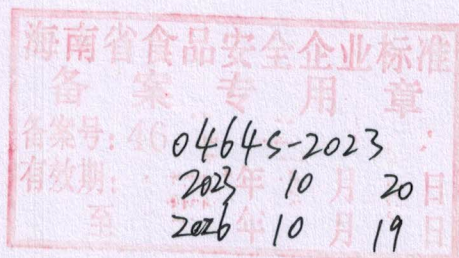 海南省食品安全企业标准
备案专用章
备案号: 46 0464S-2023
有效期: 2023年10月20日
至 2026年10月19日